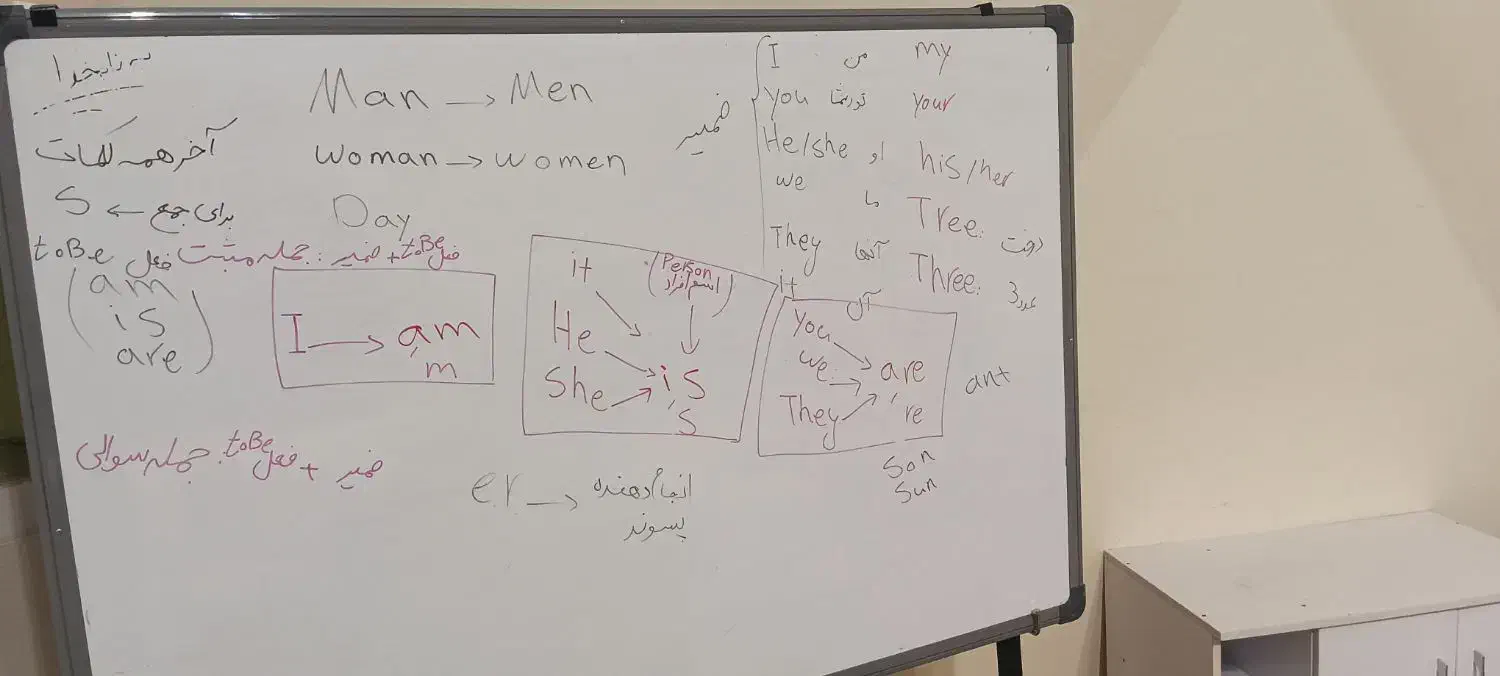 Man → Men
آخر همه کلمات
woman → women
برای جمع ← S
Day
ضمیر
I من my
You تو، شما your
He/she او his/her
we ما
They آنها
it آن
Tree: درخت
Three: عدد 3
جمله مثبت: ضمیر + فعل toBe
فعل toBe
(am
is
are)
I → am
'm
it
(Person
اسم افراد)
He
She → is
's
You
we → are
They 're
ant
Son
Sun
جمله سوالی: فعل toBe + ضمیر
er → انجام دهنده
پسوند